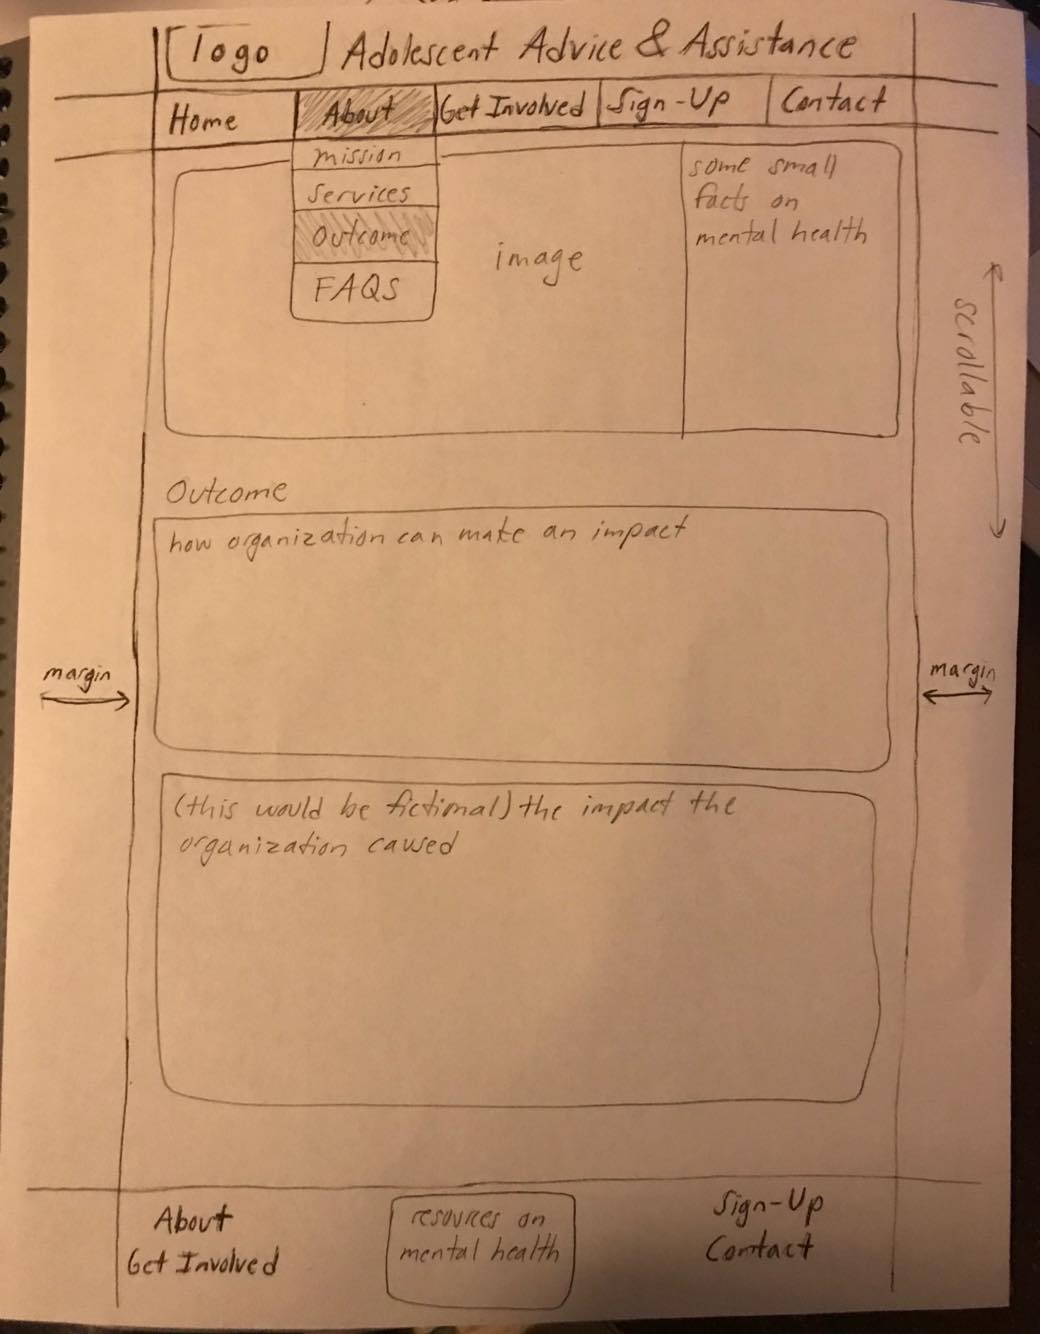 Logo
Adolescent Advice & Assistance
Home
About
Get Involved
Sign-Up
Contact
mission
services
Outcome
FAQS
image
some small
facts on
mental health
scrollable
Outcome
how organization can make an impact
margin
margin
(this would be fictional) the impact the
organization caused
About
Get Involved
resources on
mental health
Sign-Up
Contact